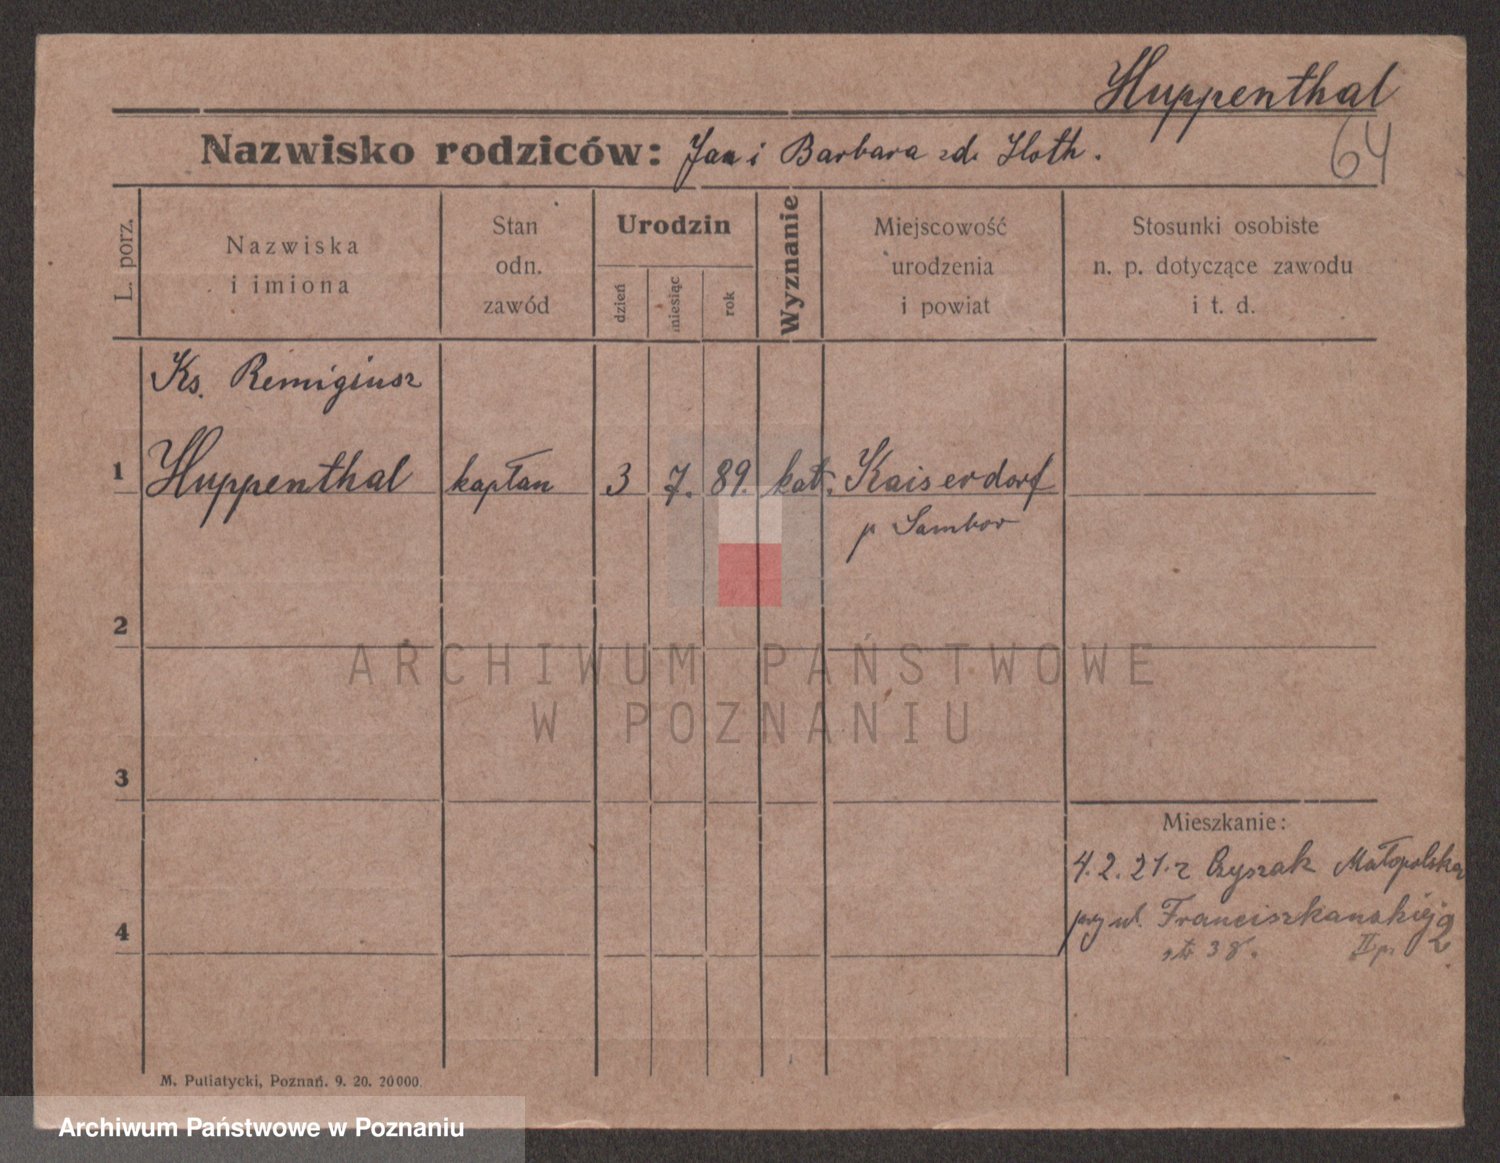 Huppenthal
64
Nazwisko rodziców: Jan i Barbara zd. Hoth.
L. porz.
Nazwiska
i imiona
Stan
odn.
zawód
Urodzin
dzień
miesiąc
rok
Wyznanie
Miejscowość
urodzenia
i powiat
Stosunki osobiste
n. p. dotyczące zawodu
i t. d.
Ks. Remigiusz
1 Huppenthal kapłan 3 7. 89. kat. Kaiserdorf
p Sambor
2
ARCHIWUM PAŃSTWOWE
W POZNANIU
3
Mieszkanie:
4.2.21. z Czyszak Małopolska
przy ul. Franciszkańskiej 2
4
38. II p.
M. Putiatycki, Poznań. 9. 20. 20000.
Archiwum Państwowe w Poznaniu